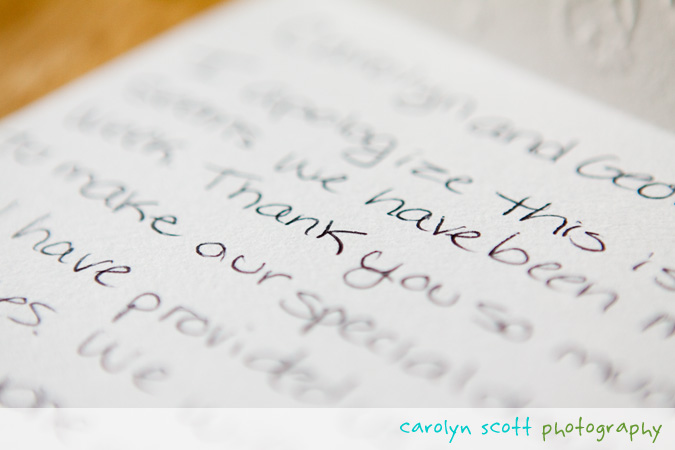 Carolyn and Geo
I apologize this is
we have been
week. Thank you so mu
to make our special
I have provided
es. We
carolyn scott photography